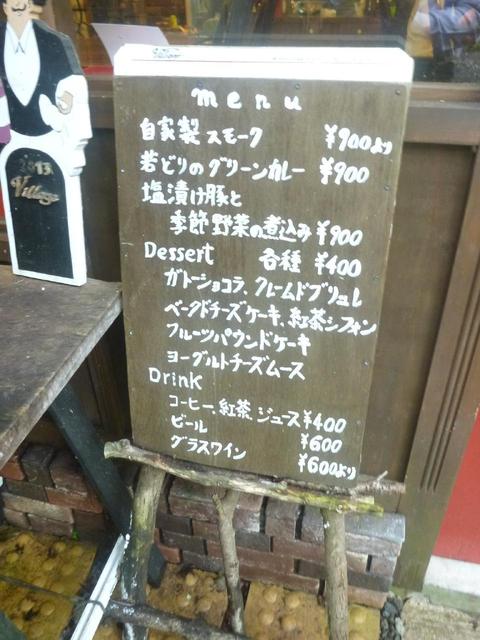 menu
自家製スモーク ¥900より
若どりのグリーンカレー ¥900
塩漬け豚と
季節野菜の煮込み ¥900
Dessert 各種 ¥400
ガトーショコラ、クレームドブリュレ
ベークドチーズケーキ、紅茶シフォン
フルーツパウンドケーキ
ヨーグルトチーズムース
Drink
コーヒー、紅茶、ジュース ¥400
ビール ¥600
グラスワイン ¥600より
2013
Village